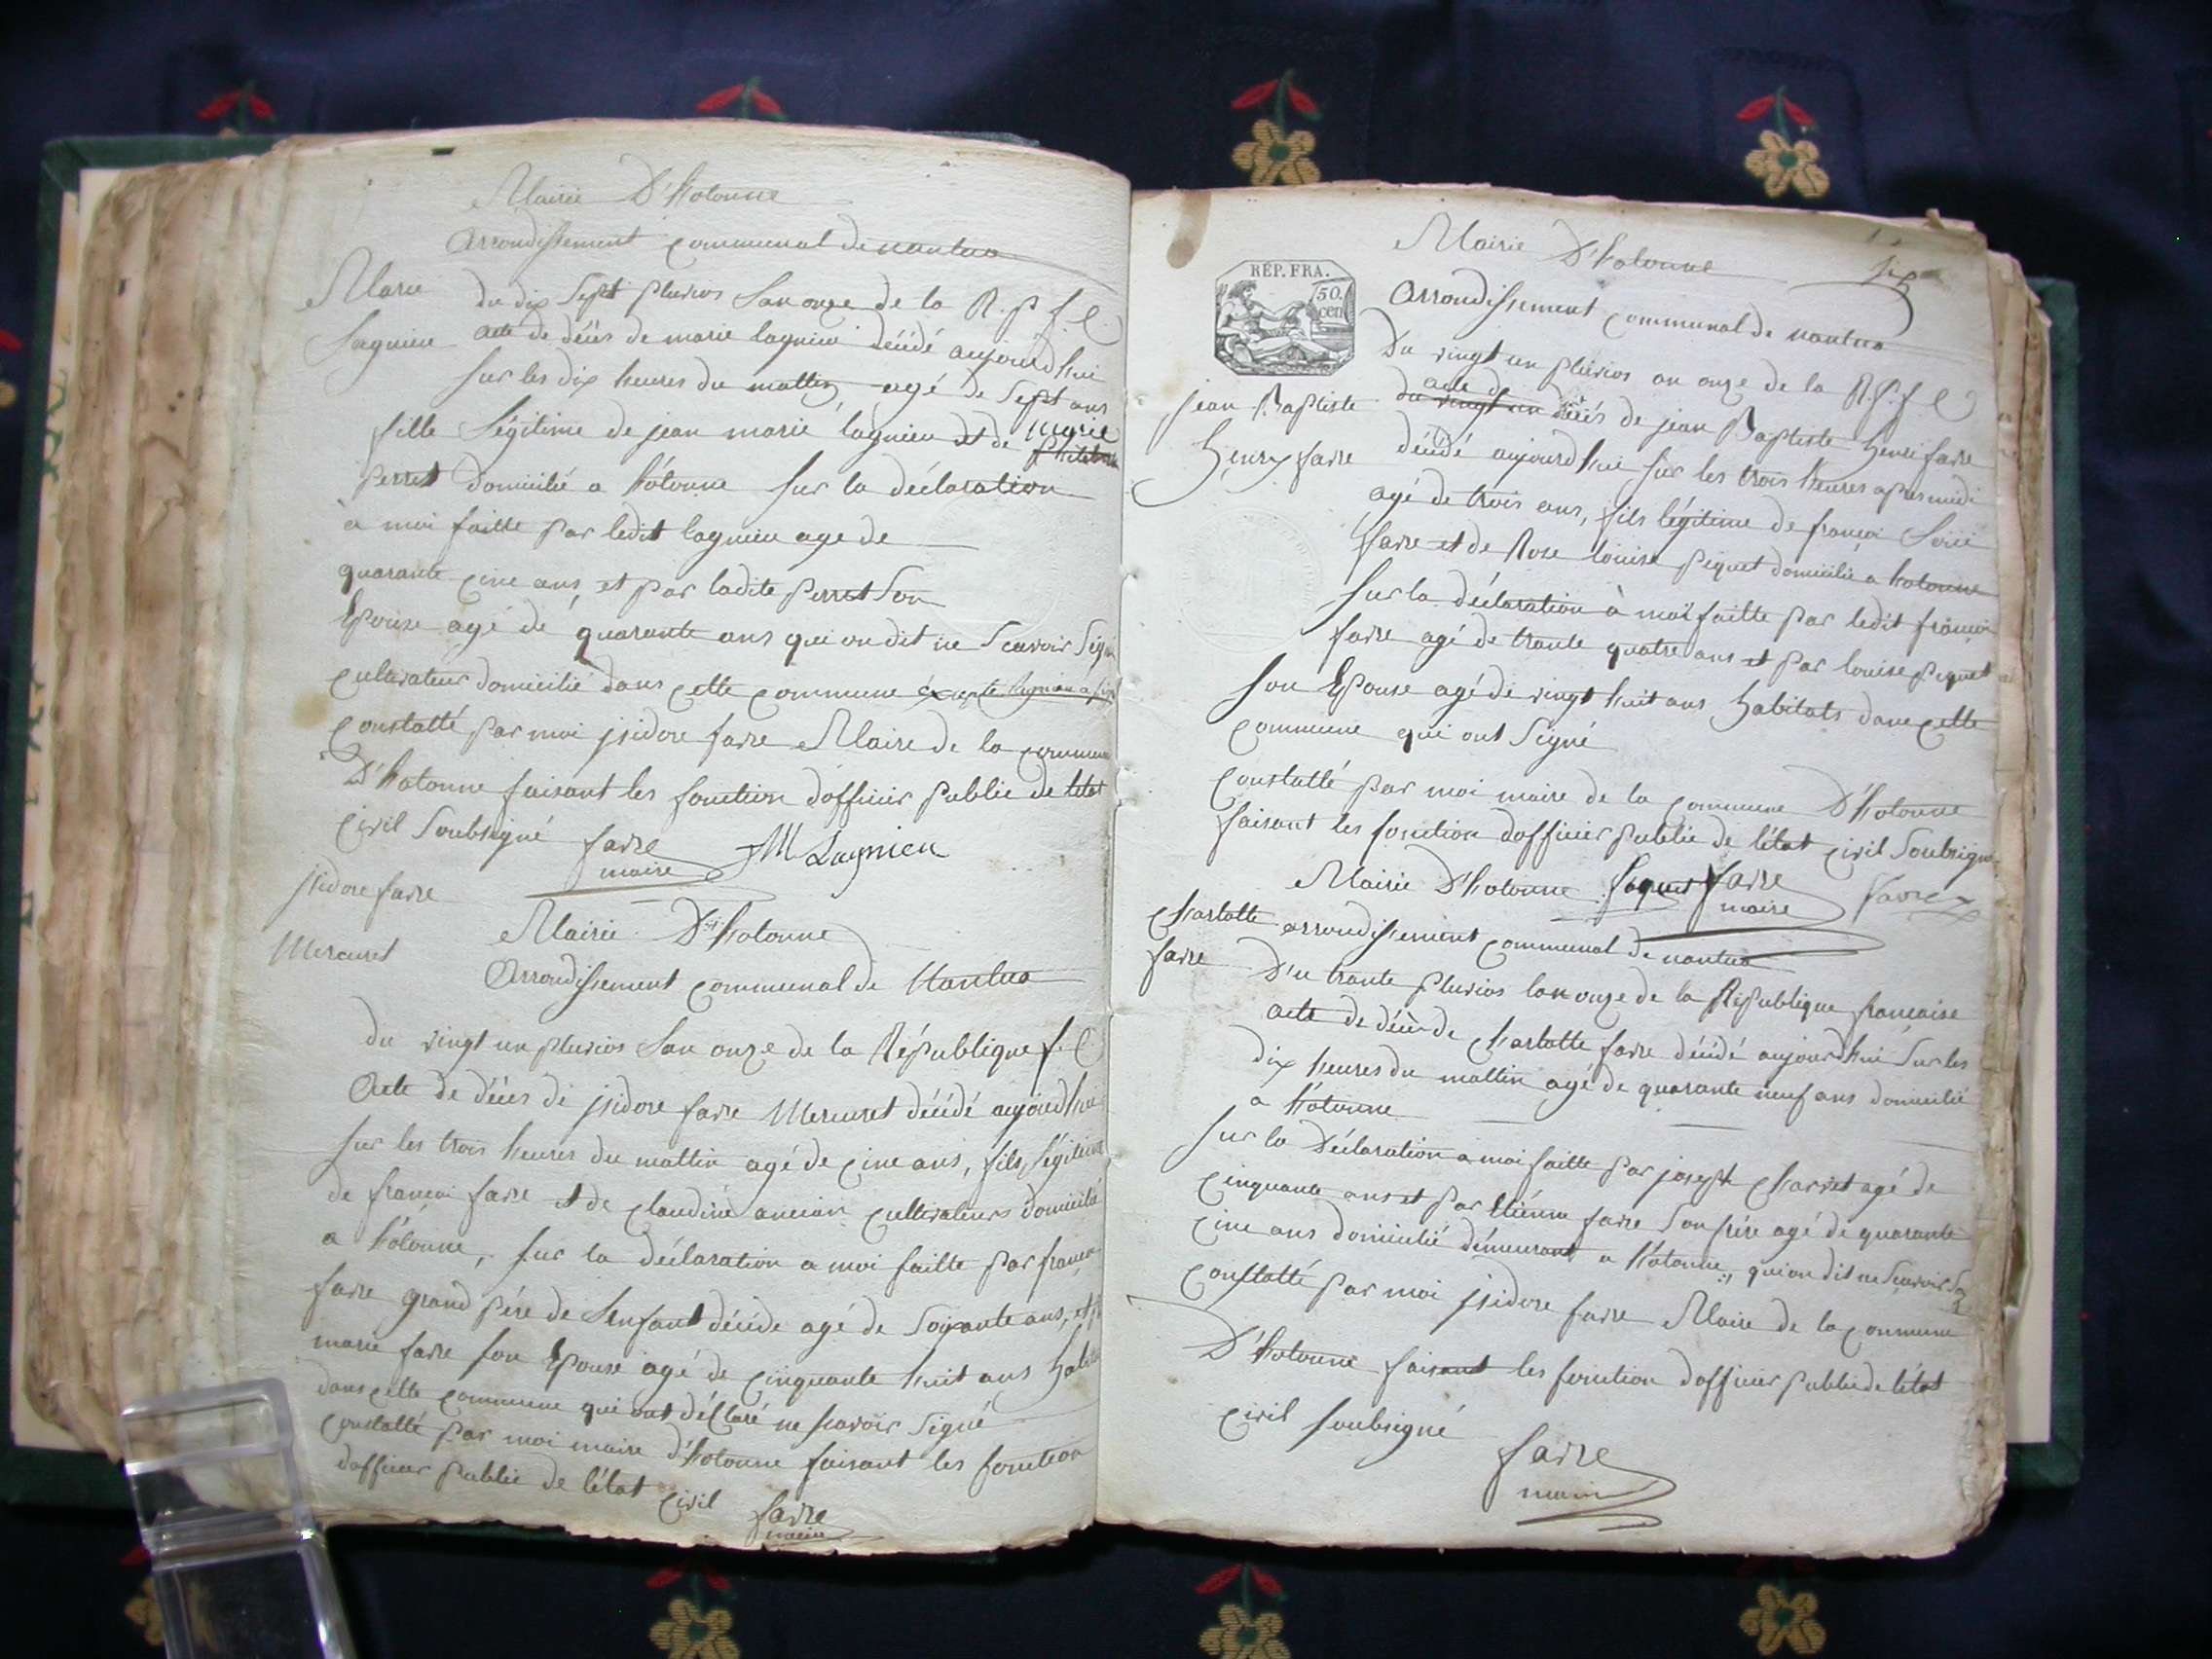 Mairie D'hotonne
Arrondissement communal de nantua
Marie
Lagnieu
du dix Sept pluvios Lan onze de la R. p. f. e
acte de décès de marie lagnieu décédé aujourd'hui
Sur les dix heures du mattin, agé de Sept ans
fille Légitime de jean marie lagnieu et de marie
perret domicilié a hotonne Sur la déclaration
à moi faitte par ledit lagnieu age de
quarante cinc ans, et par ladite perret Son
Epouse agé de quarante ans qui on dit ne Scavoir Signé
cultivateur domicilié dans cette commune excepte lagnieu a
constatté par moi jsidore favre Maire de la commune
D'hotonne faisant les fonction d'officier public de létat
civil Soubsigné favre
maire
JM Lagnieu
jsidore favre
Mercuret
Mairie D'hotonne
Arrondissement communal de Nantua
du vingt un pluvios Lan onze de la République f. e
Acte de décès de jsidore favre Mercuret décédé aujourd'hui
Sur les trois heures du mattin agé de cinc ans, fils Légitime
de françoi favre et de claudine ancian cultivateurs domicilié
a hotonne, Sur la déclaration a moi faitte par françoi
favre grand pére de Lenfant décéde agé de Soixante ans, et
marie favre Son Epouse agé de cinquante huit ans habitats
dans cette commune qui ont déclaré ne scavoir Signé
constatté par moi maire d'hotonne faisant les fonction
dofficier public de létat civil favre
maire
Mairie D'hotonne
six
REP. FRA.
50.
cen
Arrondissement communal de nantua
Du vingt un pluvios an onze de la R. P. f. e
jean Baptiste
henry favre
acte de
du vingt un décés de jean Baptiste henri favre
décédé aujourd'hui Sur les trois heures apres midi
agé de trois ans, fils légitime de françoi
favre et de Rose louise piquet domicilié a hotonne
Sur la déclaration à moi faitte par ledit françoi
favre agé de trante quatre ans et par louise piquet
Son Epouse agé de vingt huit ans habitats dans cette
commune qui ont Signé
constatté par moi maire de la commune D'hotonne
faisant les fonction dofficier public de létat civil Soubsigné
Mairie D'hotonne favre
maire
favre
charlotte
favre
arrondissement communal de nantua
Du trante pluvios lan onze de la République française
acte de décès de charlotte favre décédé aujourd'hui Sur les
dix heures du mattin agé de quarante neuf ans domicilié
a hotonne
Sur la Déclaration a moi faitte par joseph charvet agé de
cinquante ans et par Etienne favre Son frére agé de quarante
cinc ans domicilié démeurant a hotonne, qui on dit ne Scavoir
constatté par moi jsidore favre Maire de la commune
D'hotonne faisant les fonction dofficier public de létat
civil Soubsigné
favre
maire